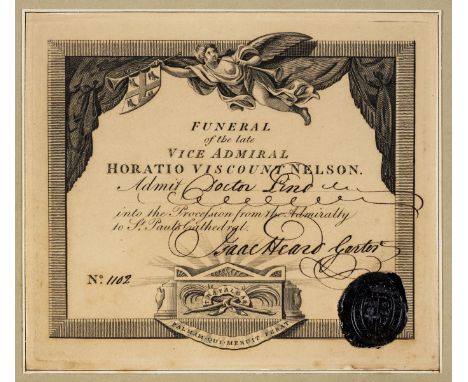 FUNERAL
of the late
VICE ADMIRAL
HORATIO VISCOUNT NELSON.
Admit Doctor Lind
into the Procession from the Admiralty
to St. Paul's Cathedral.
Isaac Heard Garter
No. 1102
TRAFALGAR
PALMAM·QUI·MERUIT·FERAT